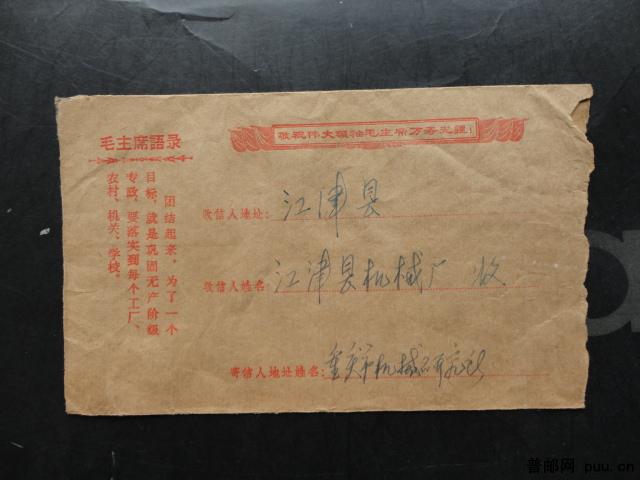 敬祝伟大领袖毛主席万寿无疆!
毛主席語录
团结起来，为了一个
目标，就是巩固无产阶级
专政，要落实到每个工厂、
农村、机关、学校。
收信人地址：江津县
收信人姓名：江津县机械厂 收
寄信人地址姓名：重庆市机械研究所
普邮网 puu.cn